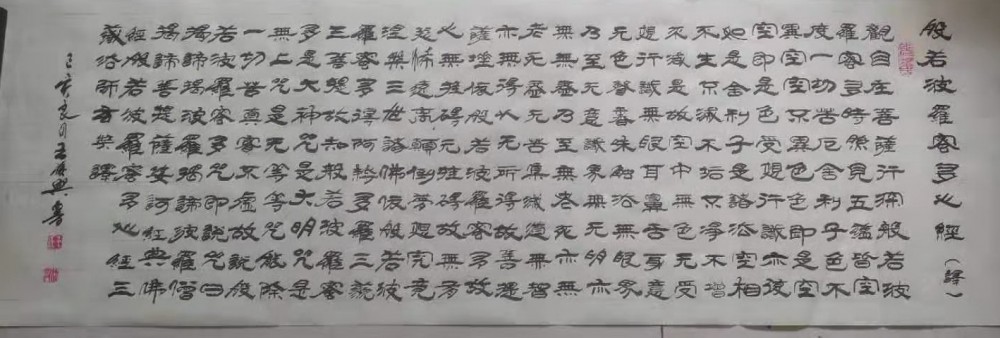 般若波羅蜜多心經（譯）
觀自在菩薩行深般若波
羅蜜多時照見五蘊皆空
度一切苦厄舍利子色不
異空空不異色色即是空
空即是色受想行識亦復
如是舍利子是諸法空相
不生不滅不垢不淨不增
不減是故空中無色无受
想行識無眼耳鼻舌身意
无色聲香味觸法无眼界
乃至无意識界無无明亦
無无盡乃至無老死亦無
老死盡无苦集滅道亦智
亦无得以无所得故菩提
薩埵依般若波羅蜜多故
心無罣礙无罣礙故無有
恐怖遠離顛倒夢想究竟
涅槃三世諸佛依般若波
羅蜜多得阿耨多羅三藐
三菩提故知般若波羅蜜
多是大神咒是大明咒是
無上咒是无等等咒能除
一切苦真實不虛故說般
若波羅蜜多咒即說咒曰
揭諦揭諦波羅揭諦波羅僧
揭諦菩提薩婆訶紅典佛
經般若波羅蜜多心經三
藏法師玄奘譯